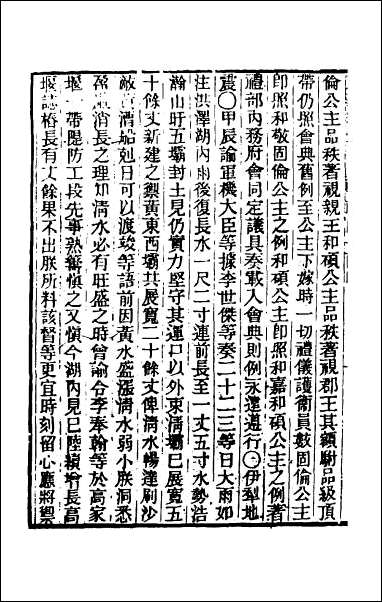 倫公主品秩著視親王和碩公主品秩著視郡王其額駙品級頂
帶仍照會典舊例至公主下嫁時一切禮儀護衞員數固倫公主
卽照和敬固倫公主之例和碩公主卽照和嘉和碩公主之例著
禮部內務府會同定議具奏載入會典則例永遠遵行○伊犁地
震○甲辰諭軍機大臣等據李世傑等奏二十二三等日大雨如
注洪澤湖內雨後復長水一尺二寸連前長至一丈五寸水勢浩
瀚山盱五壩封土見仍實力堅守其運口以外束淸壩已展寬五
十餘丈新建之禦黃東西壩共展寬二十餘丈俾淸水暢達刷沙
敵黃漕船剋日可以渡竣等語前因黃水盛漲淸水弱小朕洞悉
盈虛消長之理知淸水必有旺盛之時曾諭令李奉翰等於高家
堰一帶隄防工段先事熟籌愼之又愼今湖內見已陸續增長高
堰誌樁長有丈餘果不出朕所料該督等更宜時刻留心應將禦